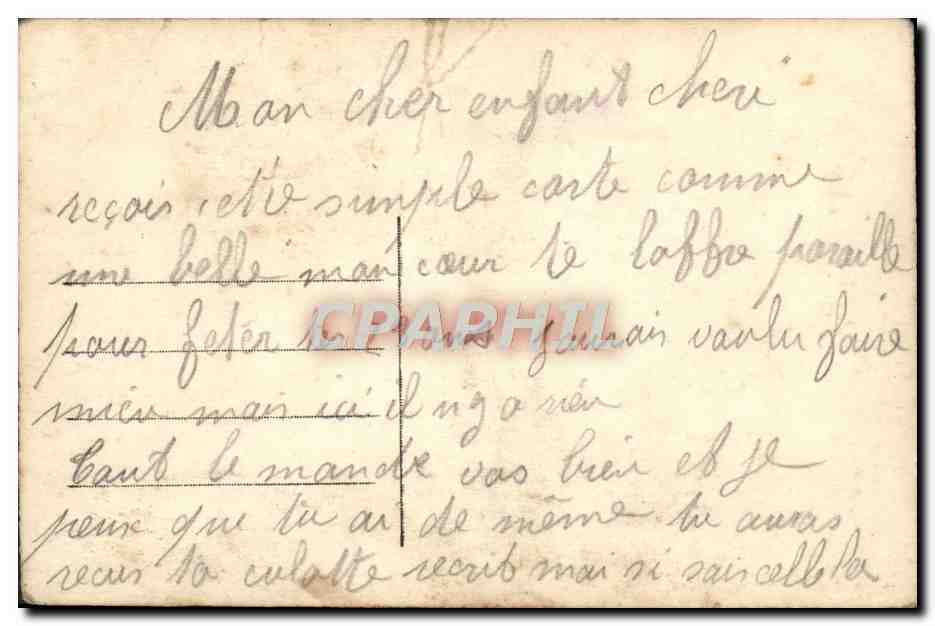 Mon cher enfant cheri
reçois cette simple carte comme
une belle mon cœur te l'offre pareille
pour feter tes ans jaurais voulu faire
mieu mais ici il ny a rien
tout le monde vas bien et je
peux que tu ai de même tu auras
recus ta culotte recrit moi si sais cell la
CPAPHIL